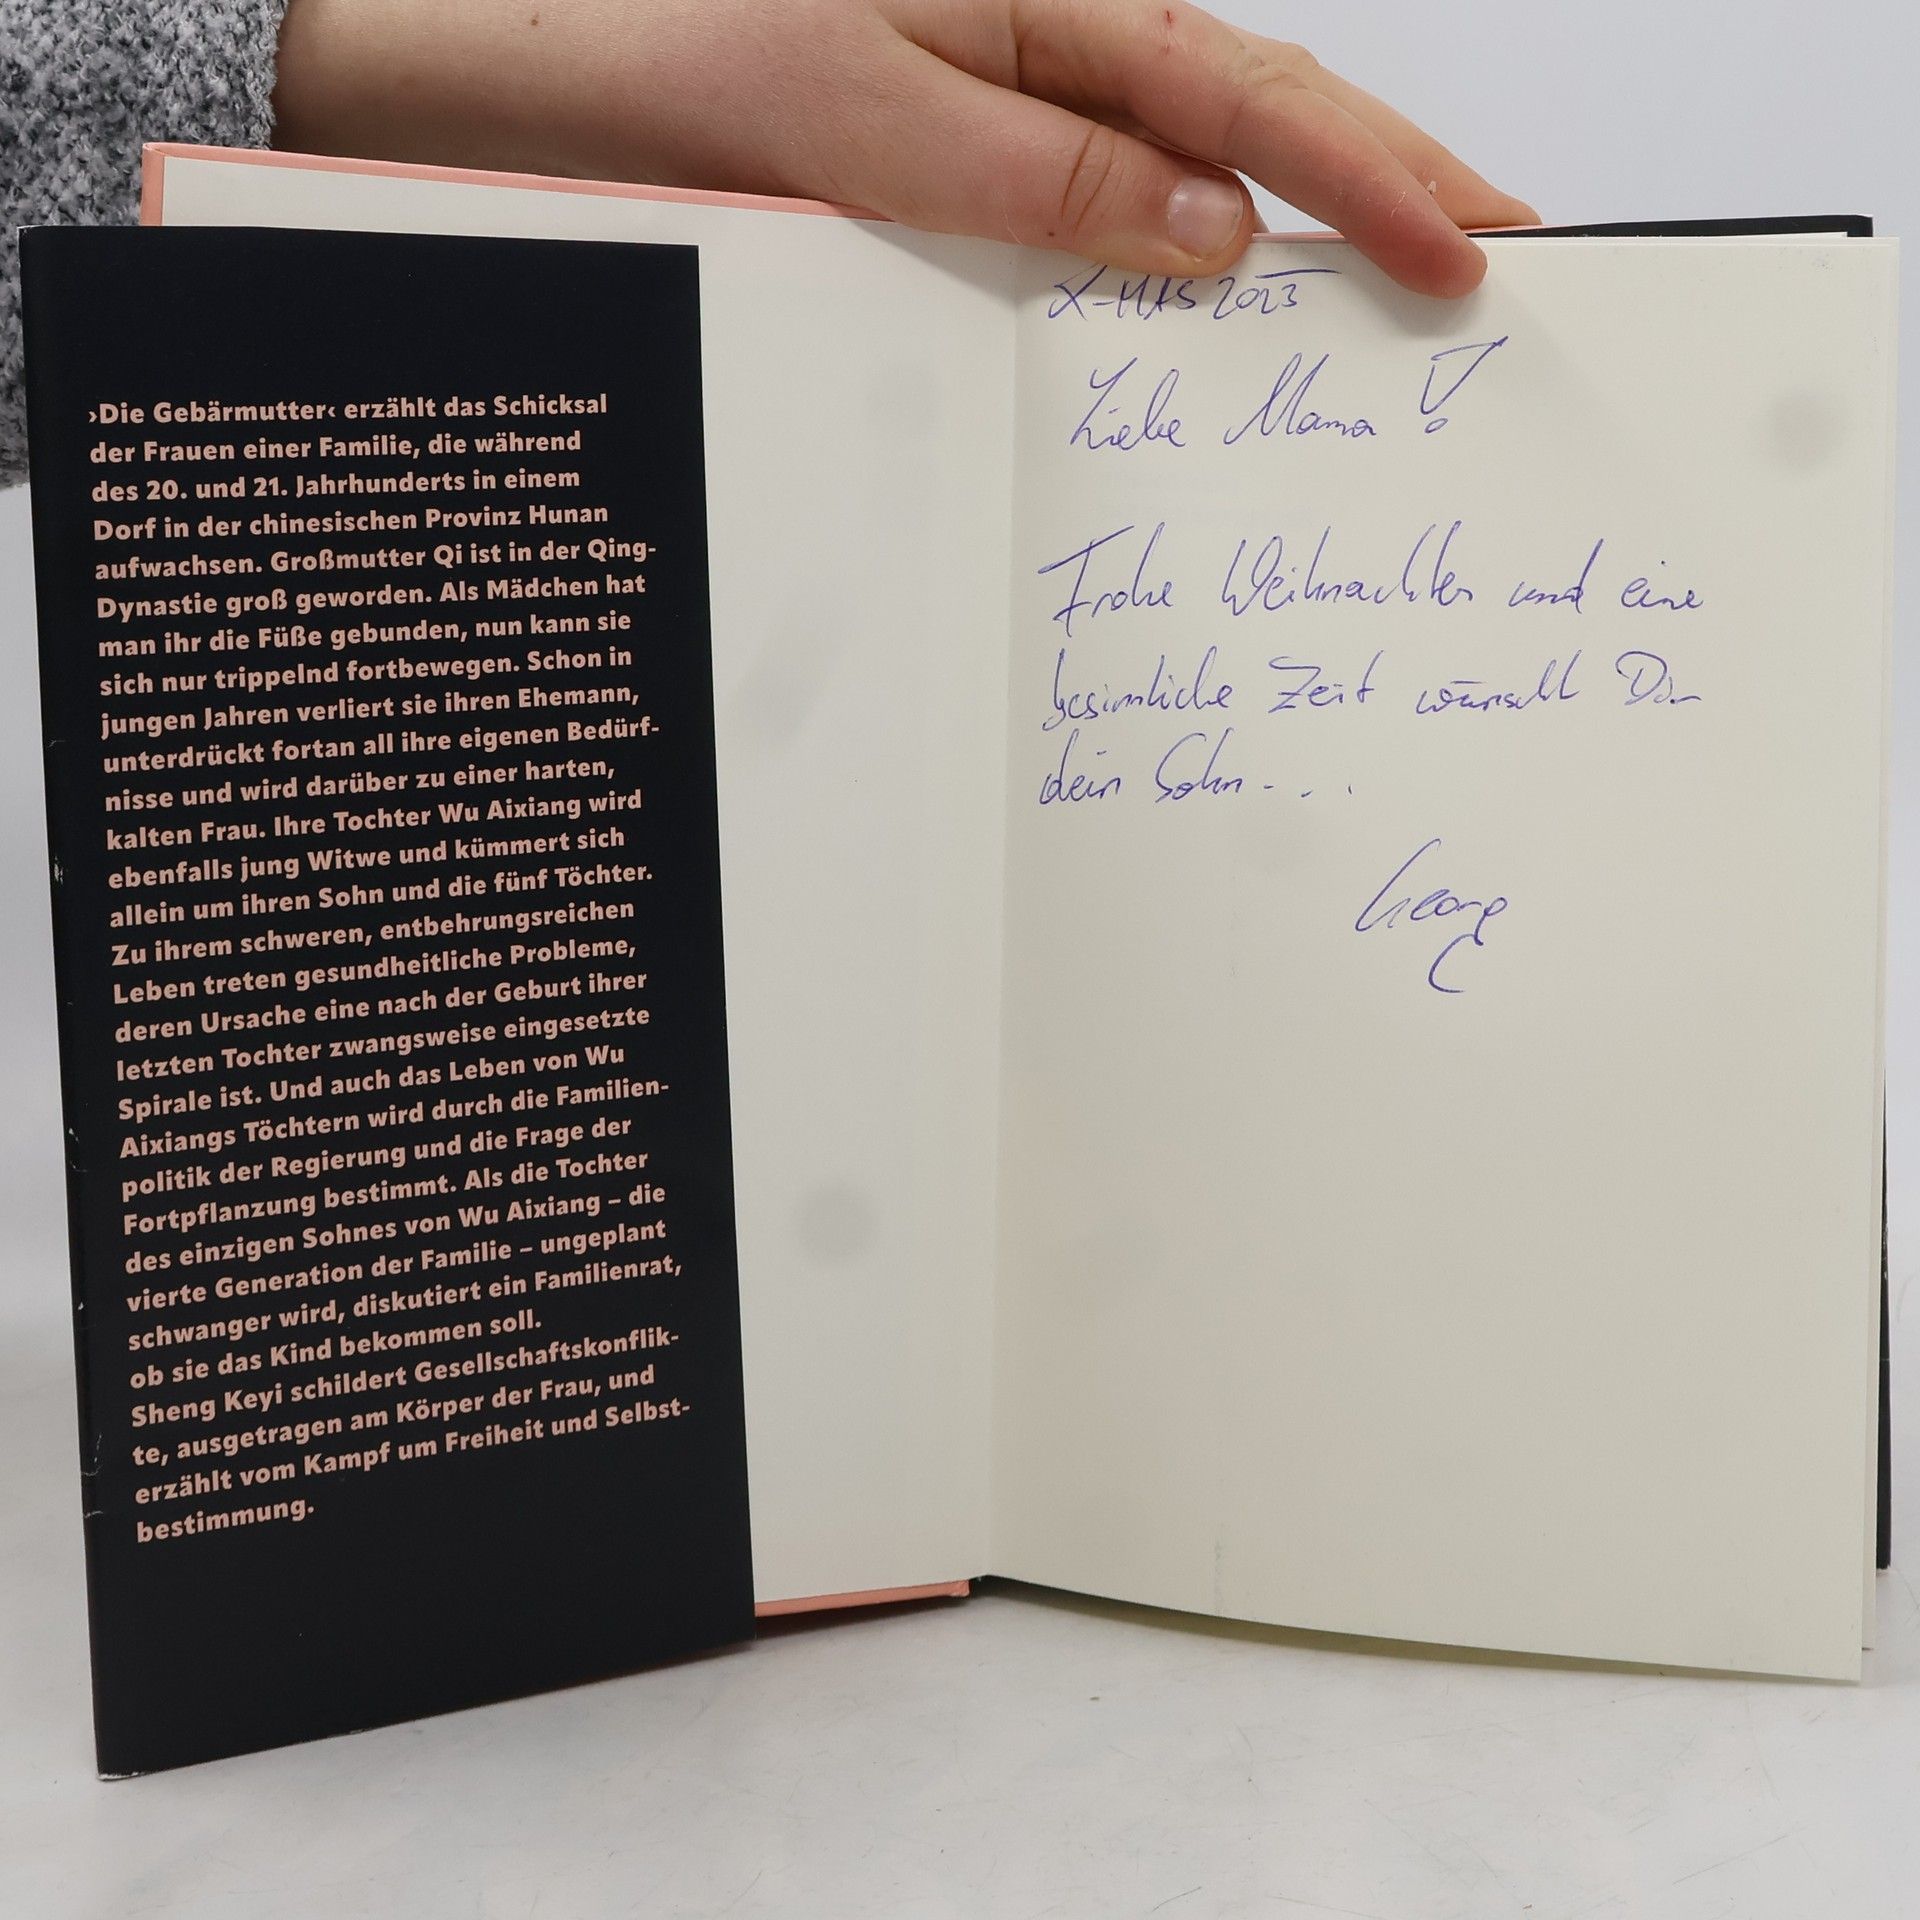 ›Die Gebärmutter‹ erzählt das Schicksal
der Frauen einer Familie, die während
des 20. und 21. Jahrhunderts in einem
Dorf in der chinesischen Provinz Hunan
aufwachsen. Großmutter Qi ist in der Qing-
Dynastie groß geworden. Als Mädchen hat
man ihr die Füße gebunden, nun kann sie
sich nur trippelnd fortbewegen. Schon in
jungen Jahren verliert sie ihren Ehemann,
unterdrückt fortan all ihre eigenen Bedürf-
nisse und wird darüber zu einer harten,
kalten Frau. Ihre Tochter Wu Aixiang wird
ebenfalls jung Witwe und kümmert sich
allein um ihren Sohn und die fünf Töchter.
Zu ihrem schweren, entbehrungsreichen
Leben treten gesundheitliche Probleme,
deren Ursache eine nach der Geburt ihrer
letzten Tochter zwangsweise eingesetzte
Spirale ist. Und auch das Leben von Wu
Aixiangs Töchtern wird durch die Familien-
politik der Regierung und die Frage der
Fortpflanzung bestimmt. Als die Tochter
des einzigen Sohnes von Wu Aixiang – die
vierte Generation der Familie – ungeplant
schwanger wird, diskutiert ein Familienrat,
ob sie das Kind bekommen soll.
Sheng Keyi schildert Gesellschaftskonflik-
te, ausgetragen am Körper der Frau, und
erzählt vom Kampf um Freiheit und Selbst-
bestimmung.
X-MAS 2023
Liebe Mama !
Frohe Weihnachten und eine
besinnliche Zeit wünscht Dir
dein Sohn...
Georg